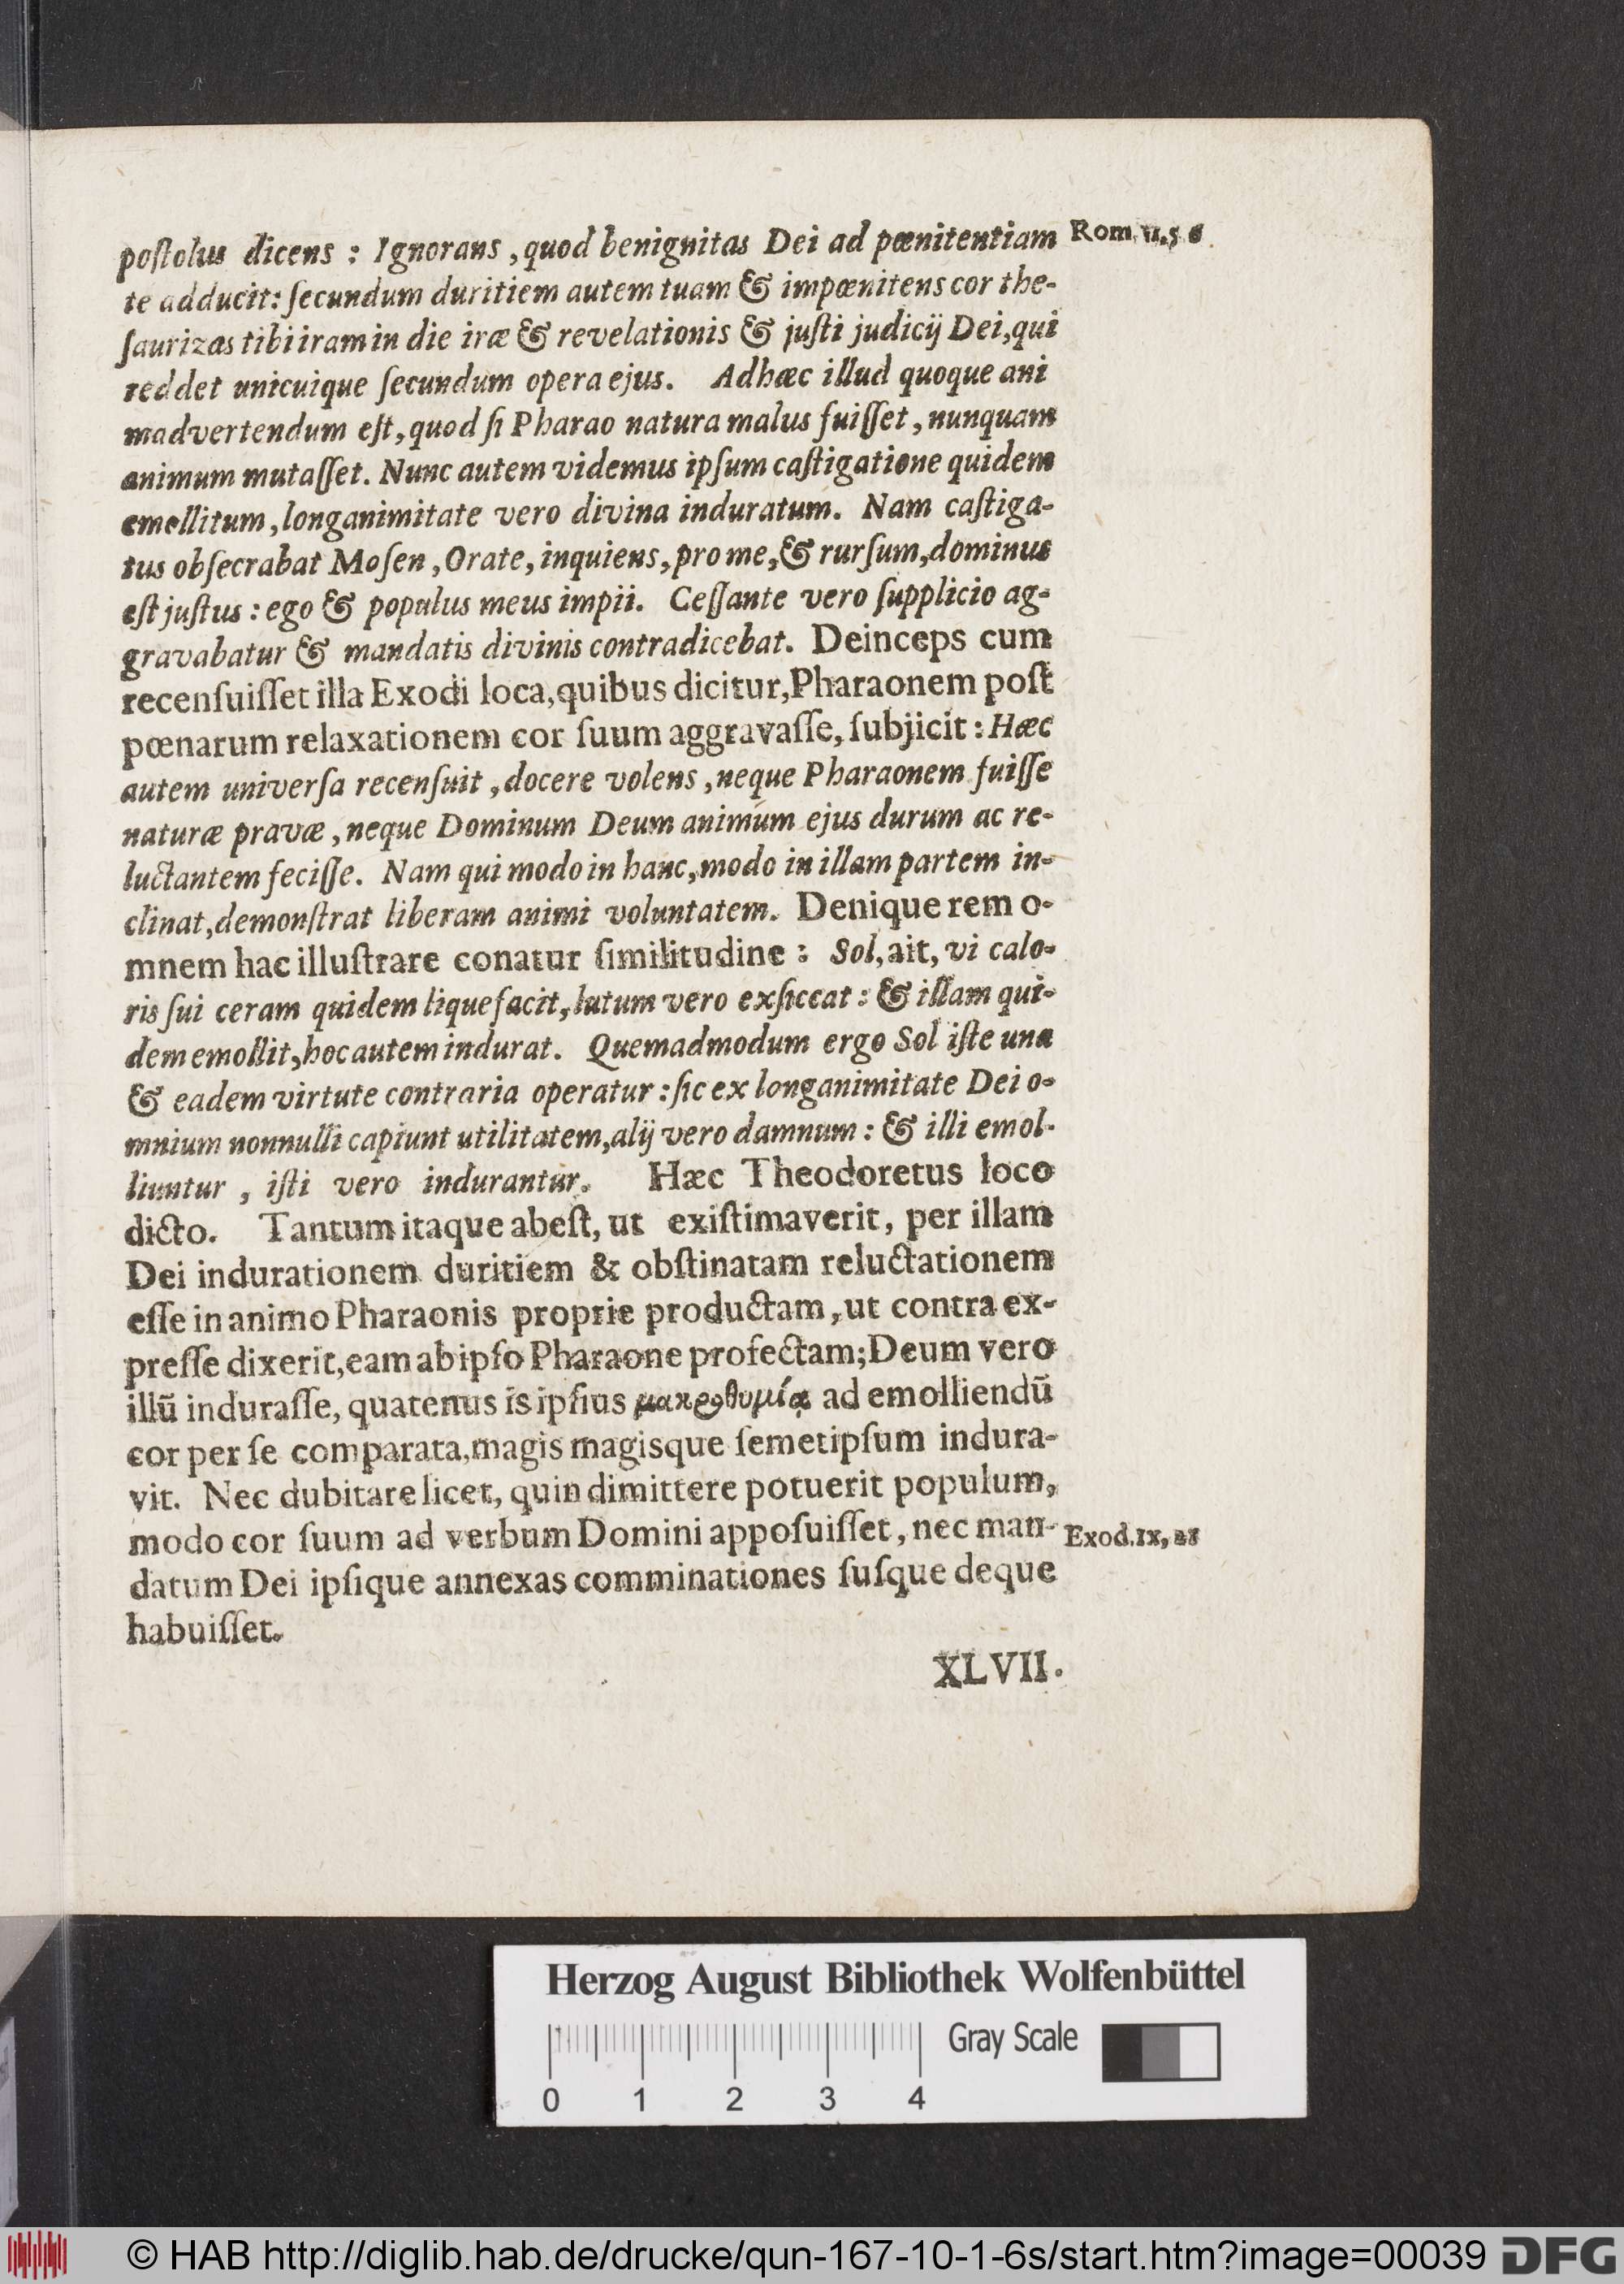 poſtolus dicens : Ignorans , quod benignitas Dei ad pœnitentiam
Rom. II.5 6.
te adducit: ſecundum duritiem autem tuam & impœnitens cor the-
ſaurizas tibi iram in die iræ & revelationis & juſti judicij Dei, qui
reddet unicuique ſecundum opera ejus. Adhæc illud quoque ani
madvertendum eſt, quod ſi Pharao natura malus fuiſſet , nunquam
animum mutaſſet. Nunc autem videmus ipſum caſtigatione quidem
emollitum, longanimitate vero divina induratum. Nam caſtiga-
tus obſecrabat Moſen , Orate, inquiens, pro me, & rurſum, dominus
eſt juſtus : ego & populus meus impii. Ceſſante vero ſupplicio ag-
gravabatur & mandatis divinis contradicebat. Deinceps cum
recenſuiſſet illa Exodi loca, quibus dicitur, Pharaonem poſt
pœnarum relaxationem cor ſuum aggravaſſe, ſubjicit : Hæc
autem univerſa recenſuit , docere volens , neque Pharaonem fuiſſe
naturæ pravæ , neque Dominum Deum animum ejus durum ac re-
luctantem feciſſe. Nam qui modo in hanc, modo in illam partem in-
clinat, demonſtrat liberam animi voluntatem. Denique rem o-
mnem hac illuſtrare conatur ſimilitudine : Sol, ait, vi calo-
ris ſui ceram quidem liquefacit, lutum vero exſiccat : & illam qui-
dem emollit, hoc autem indurat. Quemadmodum ergo Sol iſte una
& eadem virtute contraria operatur : ſic ex longanimitate Dei o-
mnium nonnulli capiunt utilitatem, alij vero damnum : & illi emol-
liuntur , iſti vero indurantur. Hæc Theodoretus loco
dicto. Tantum itaque abeſt, ut exiſtimaverit, per illam
Dei indurationem duritiem & obſtinatam reluctationem
eſſe in animo Pharaonis proprie productam, ut contra ex-
preſſe dixerit, eam ab ipſo Pharaone profectam; Deum vero
illū induraſſe, quatenus is ipſius μακροθυμίᾳ ad emolliendū
cor per ſe comparata, magis magisque ſemetipſum indura-
vit. Nec dubitare licet, quin dimittere potuerit populum,
modo cor ſuum ad verbum Domini appoſuiſſet, nec man-
Exod. IX, 21
datum Dei ipſique annexas comminationes ſuſque deque
habuiſſet.
XLVII.
Herzog August Bibliothek Wolfenbüttel
Gray Scale
0 1 2 3 4
© HAB http://diglib.hab.de/drucke/qun-167-10-1-6s/start.htm?image=00039 DFG